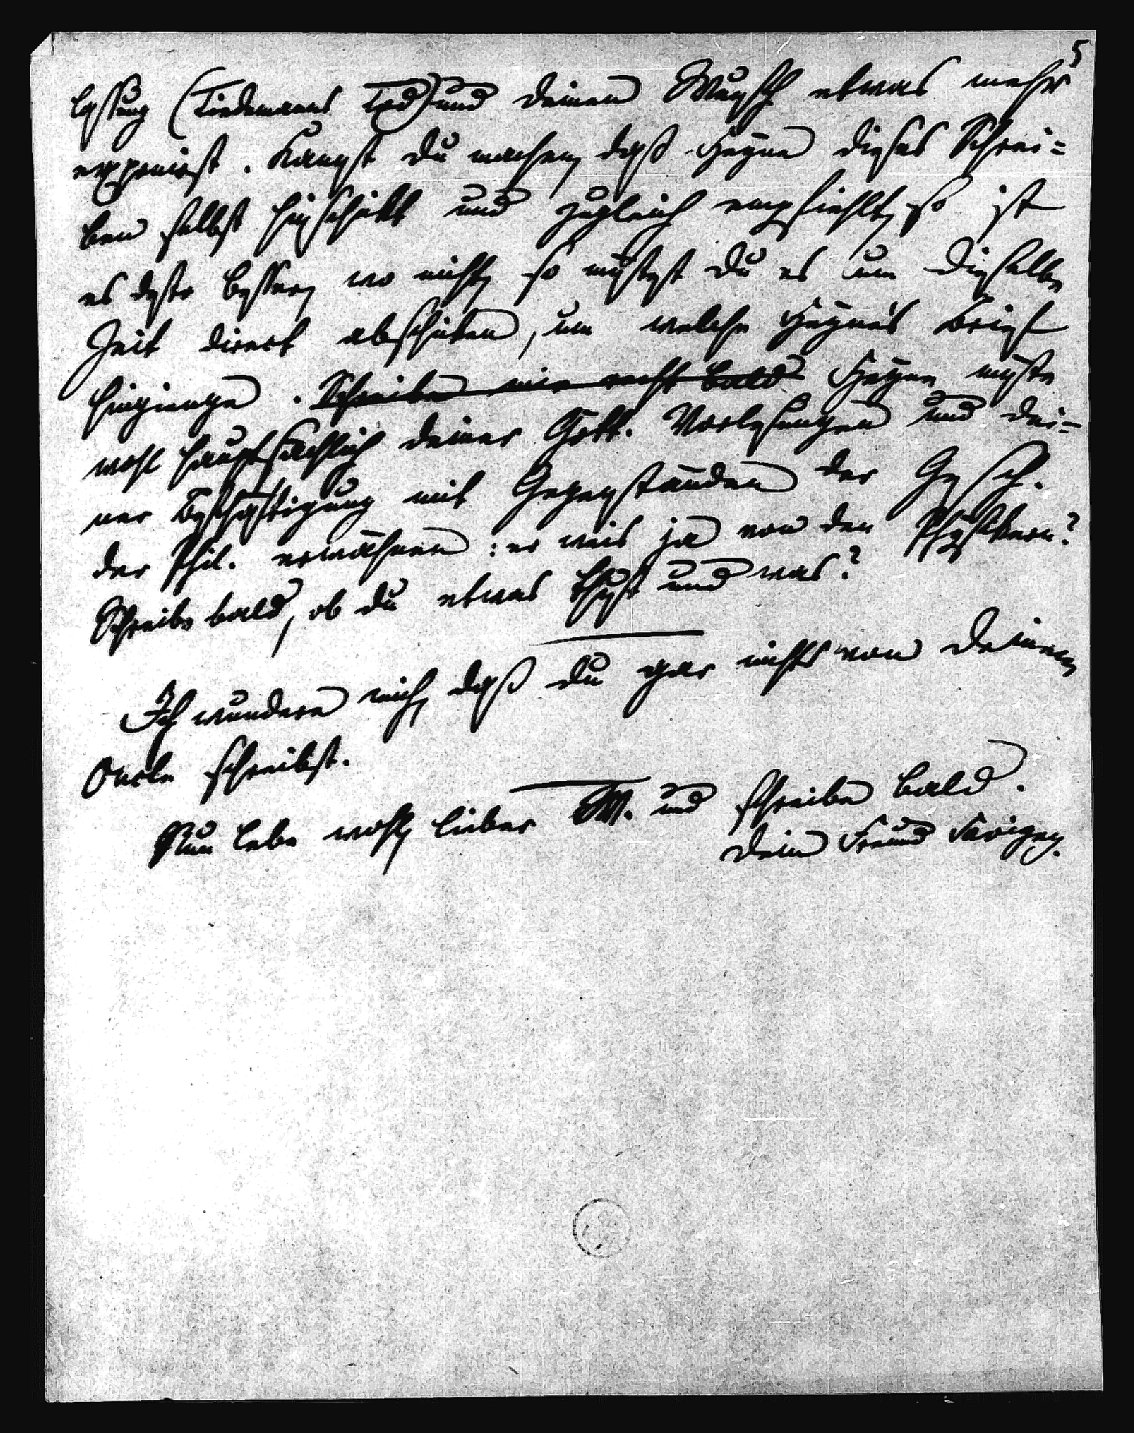 5
lassung (Tiedemanns Tod) und deinen Wunsch etwas mehr
exponirst. Kannst du machen, daß Heyne dieses Schrei=
ben selbst hinschickt und zugleich empfiehlt, so ist
es desto besser, wo nicht, so müstest du es um dieselbe
Zeit direct abschicken, um welche Heyne's Brief
hinginge. Schreibe mir recht bald Heyne müste
wohl hauptsächlich deiner Gött. Vorlesungen und dei=
ner Beschäftigung mit Gegenständen der Gesch.
der Phil. erwähnen: er weis ja von den
Schreibe bald, ob du etwas thust und was?
Ich wundere mich, daß du gar nichts von deinem
Onkle schreibst.
Nun lebe wohl, lieber und schreibe bald.
Dein Freund Savigny.